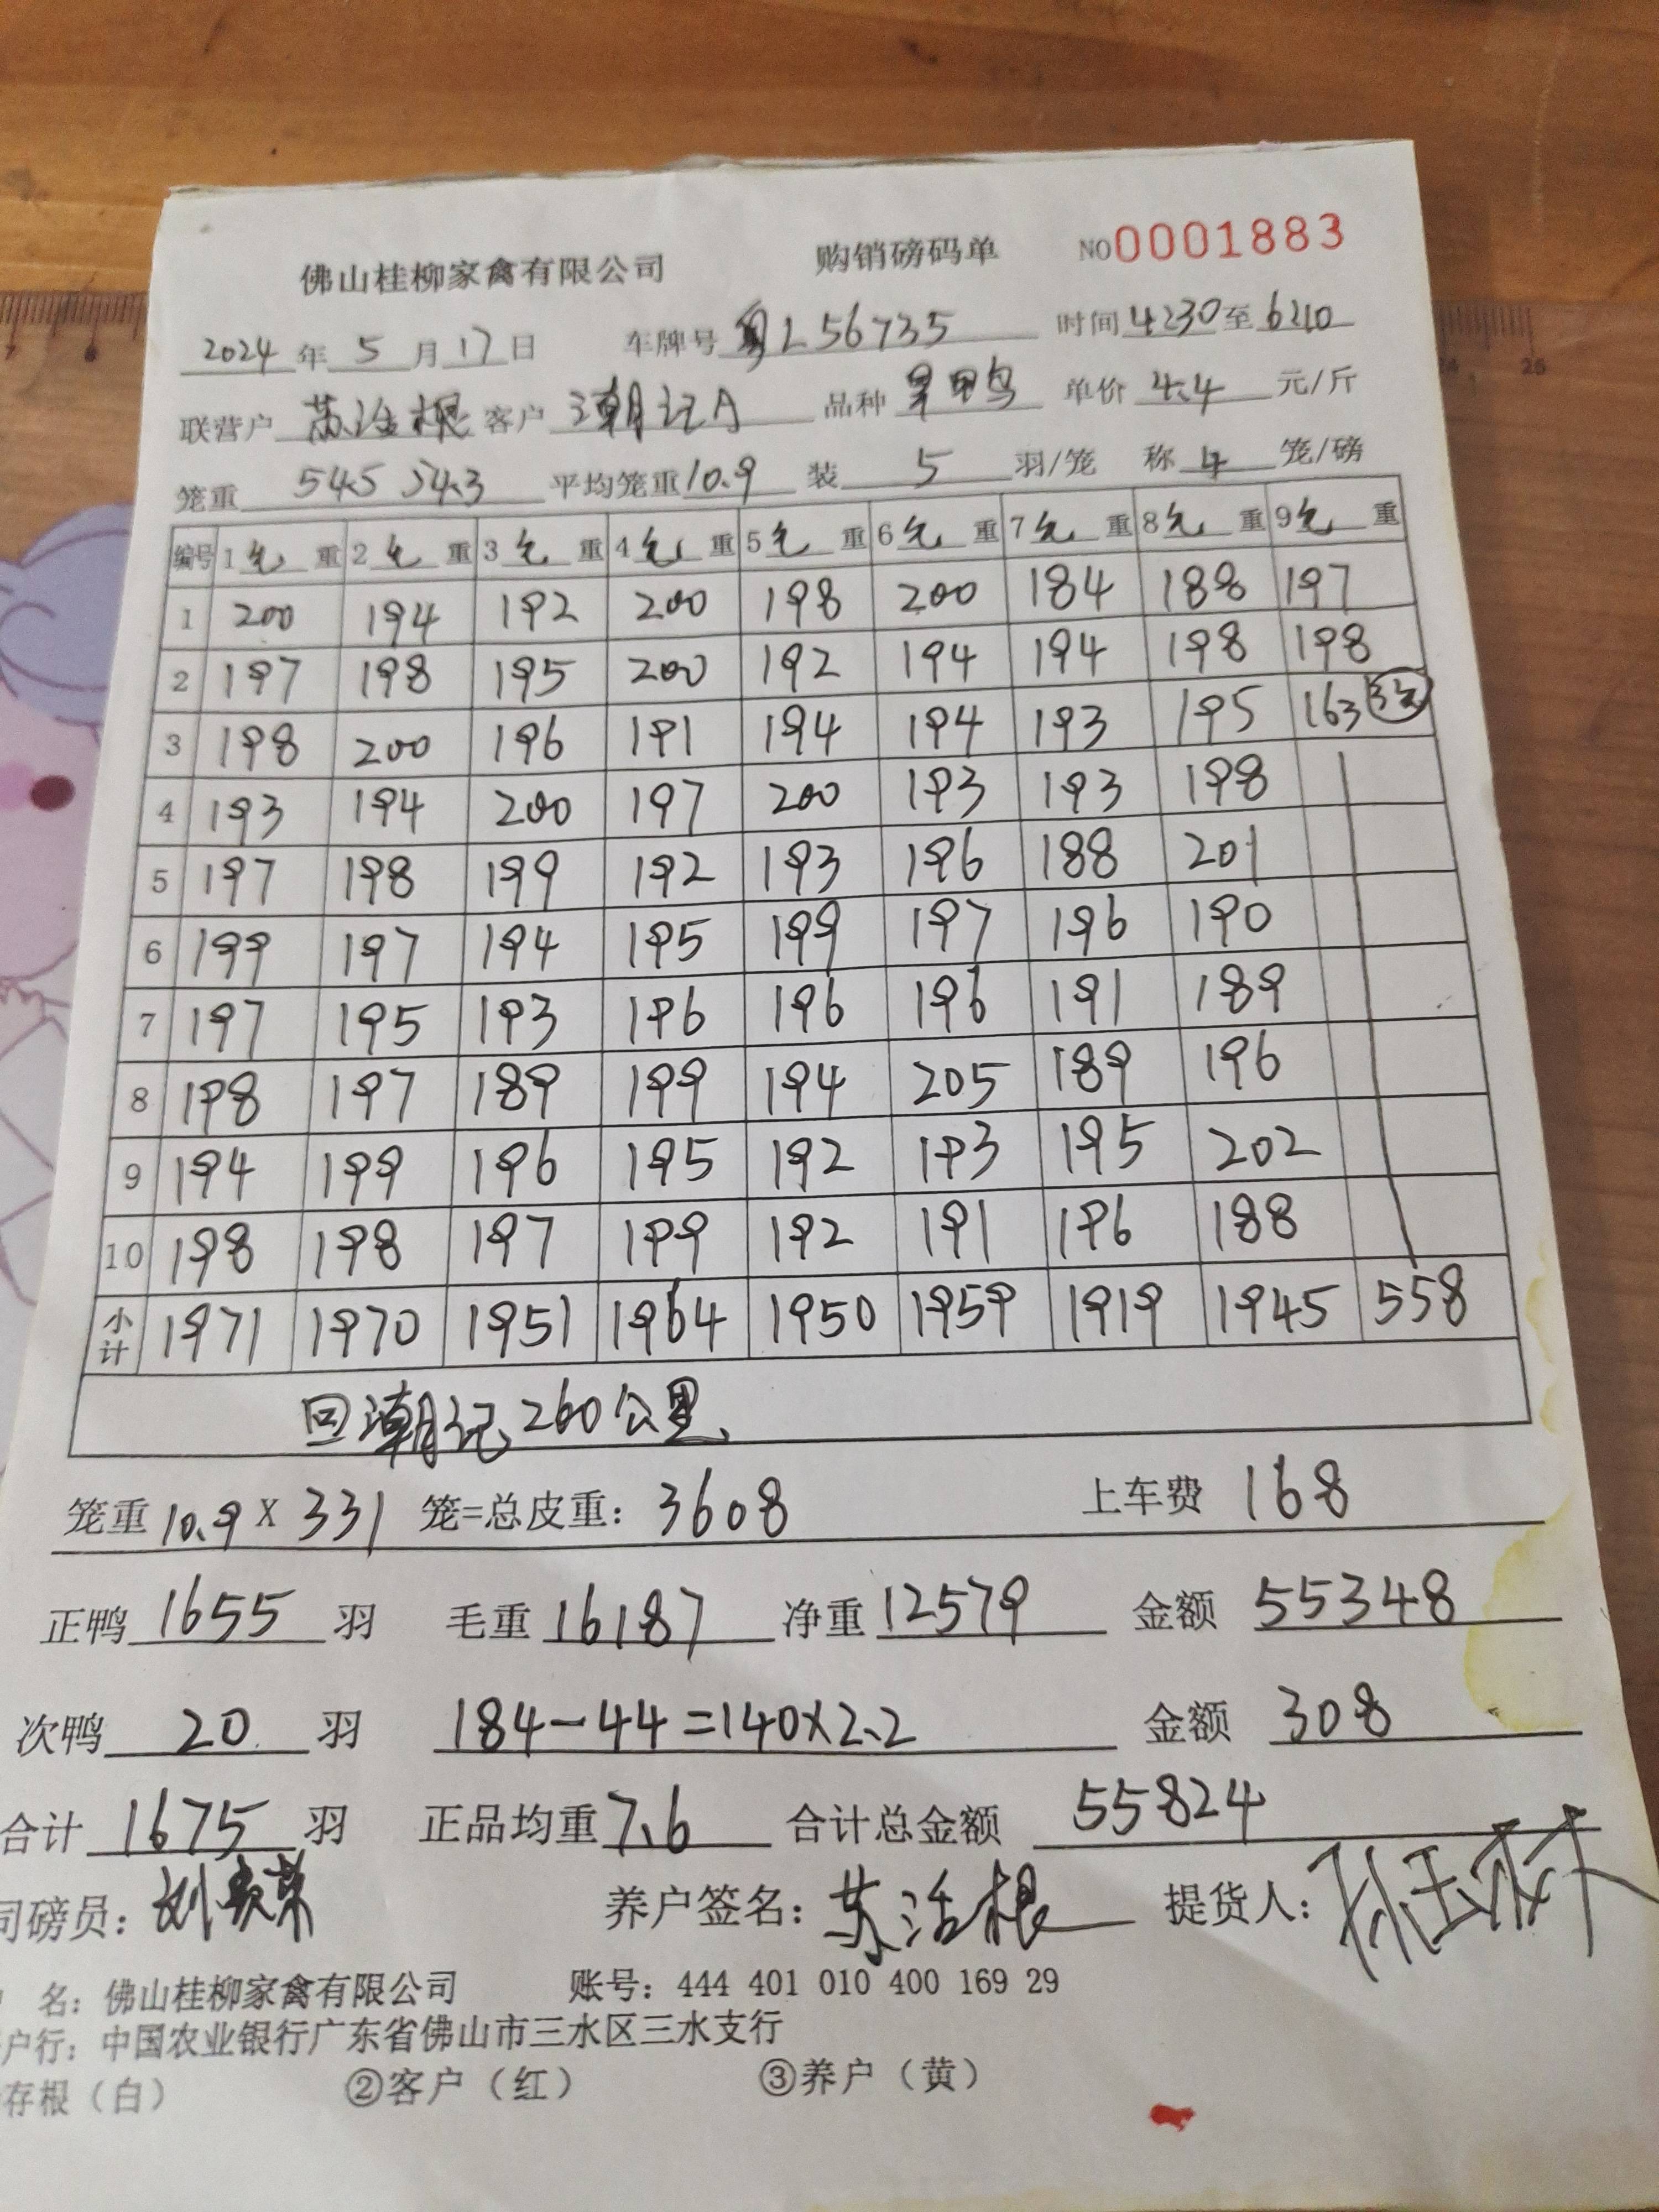 佛山桂柳家禽有限公司 购销磅码单 NO0001883
2024年5月17日 车牌号粤L56735 时间4:30至6:40
联营户苏活根 客户潮记A 品种 单价4.4元/斤
笼重545 543 平均笼重10.9 装5羽/笼 称4笼/磅
编号 1毛重 2毛重 3毛重 4毛重 5毛重 6毛重 7毛重 8毛重 9毛重
1 200 194 192 200 198 200 184 188 197
2 197 198 195 200 192 194 194 198 198
3 198 200 196 191 194 194 193 195 163
4 193 194 200 197 200 193 193 198
5 197 198 199 192 193 196 188 201
6 199 197 194 195 199 197 196 190
7 197 195 193 196 196 196 191 189
8 198 197 189 199 194 205 189 196
9 194 199 196 195 192 193 195 202
10 198 198 197 199 192 191 196 188
小计 1971 1970 1951 1964 1950 1959 1919 1945 558
回潮记260公里
笼重10.9X331笼=总皮重：3608 上车费168
正鸭1655羽 毛重16187 净重12579 金额55348
次鸭20羽 184-44=140x2.2 金额308
合计1675羽 正品均重7.6 合计总金额55824
司磅员： 养户签名：苏活根 提货人：孙玉树
名：佛山桂柳家禽有限公司 账号：444 401 010 400 169 29
户行：中国农业银行广东省佛山市三水区三水支行
存根（白） ②客户（红） ③养户（黄）